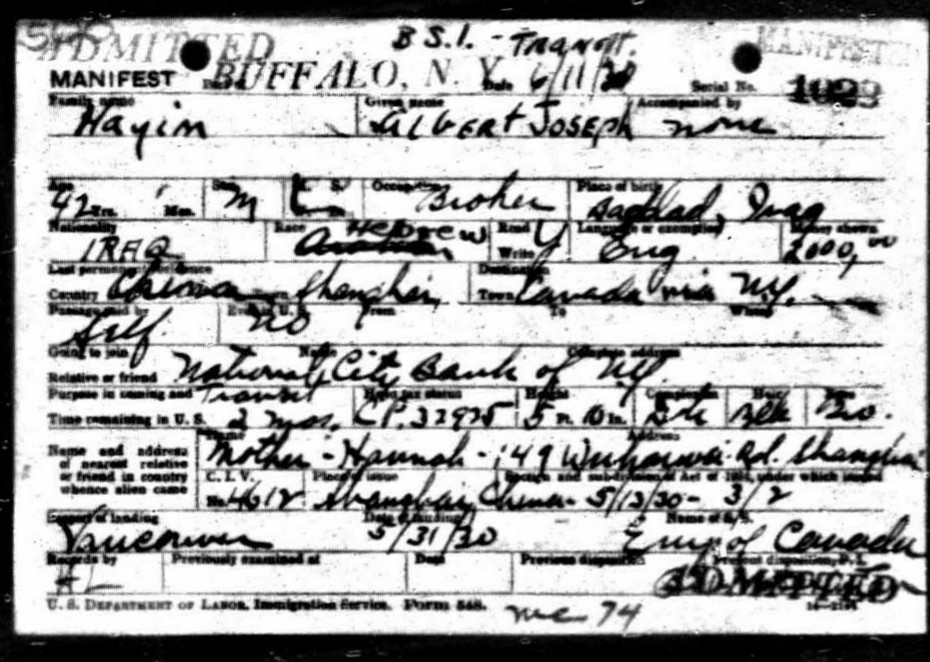 ADMITTED B.S.I. - Transit. MANIFEST
MANIFEST BUFFALO, N. Y. Date 6/11/30 Serial No.
Family name Given name Accompanied by
Hayim Albert Joseph none
Age Sex M. S. Occupation Place of birth
42 Yrs. Mos. M Broker Bagdad, Iraq
Nationality Race Read Language or exemption Money shown
IRAQ Hebrew Y Write Eng 2000,00
Last permanent residence Destination
Country China Shanghai, Town Canada via NY.
Passage paid by Ever in U. S. From To Where
Self NO
Going to join Name Complete address
Relative or friend National City Bank of NY.
Purpose in coming and Transit Head tax status Height Complexion Hair Eyes
Time remaining in U. S. 2 mos. CP. 32975 5 Ft. 10 In. Drk Blk Bro.
Name and address of nearest relative or friend in country whence alien came
Name Address
Mother - Hannah - 149 Rd. Shanghai
C. I. V. Place of issue Section and subdivision of Act of 1924, under which issued
No. 4612 Shanghai, China - 5/13/30 - 3/2
Seaport of landing Date of landing Name of S/S.
Vancouver 5/31/30 Emp of Canada
Records by Previously examined at Date Previous disposition Present disposition, P. I.
ADMITTED
U. S. DEPARTMENT OF LABOR, Immigration Service. FORM 548.
74